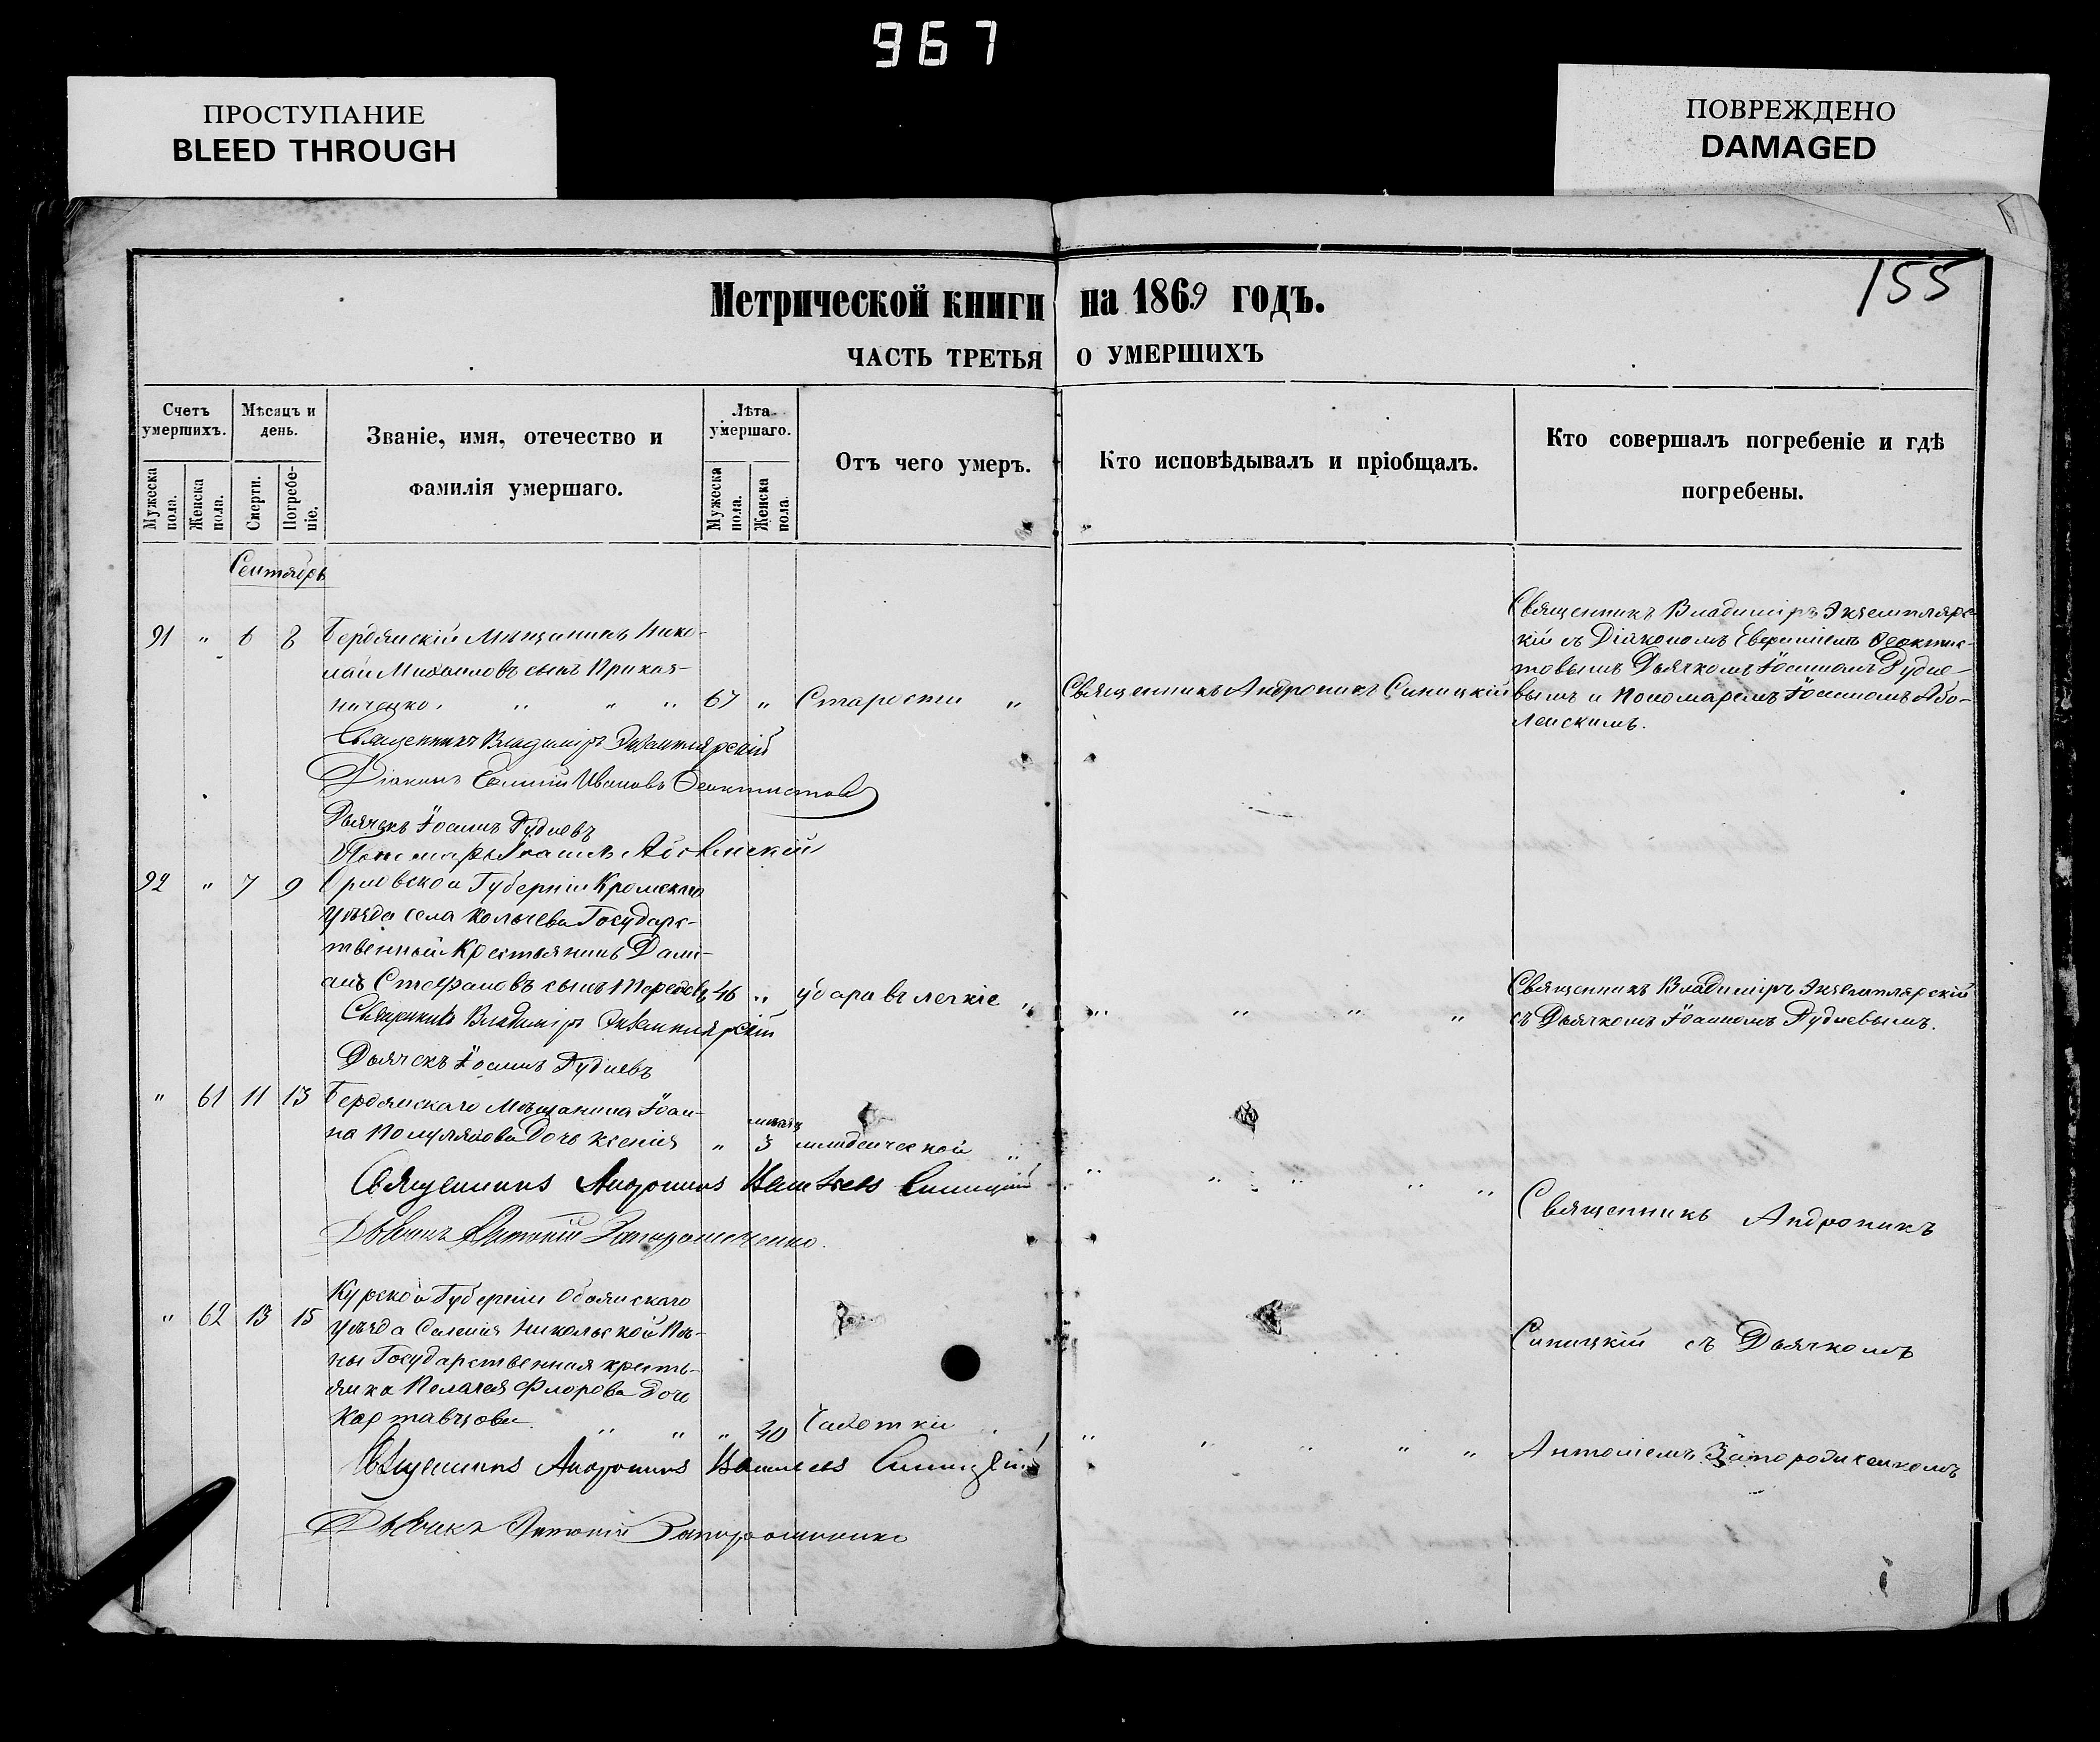 967
ПРОСТУПАНИЕ
BLEED THROUGH
ПОВРЕЖДЕНО
DAMAGED
155
Метрической книги на 1869 годъ.
ЧАСТЬ ТРЕТЬЯ О УМЕРШИХЪ
Счетъ умершихъ.
Мѣсяцъ и день.
Званіе, имя, отечество и фамилія умершаго.
Лѣта умершаго.
Отъ чего умеръ.
Кто исповѣдывалъ и пріобщалъ.
Кто совершалъ погребеніе и гдѣ погребены.
Мужеска пола.
Женска пола.
Смерти.
Погребеніе.
Мужеска пола.
Женска пола.
Сентябрь
91 " 6 8 Бердянскій Мѣщанинъ Нико-
лай Михайловъ сынъ Прихад-
ниченко. " " " 67 " Старости " Священникъ Андроникъ Синицкій
Священникъ Владиміръ Экземплярс-
кій съ Діакономъ Евфиміемъ Феоктис-
товымъ Дьячкомъ Іоанномъ Рудне-
вымъ и Пономаремъ Іоанномъ Або-
ленскимъ.
Священникъ Владиміръ Экземплярскій
Діаконъ Ивановъ Феоктистовъ
Дьячекъ Іоаннъ Рудневъ
Пономарь Іоаннъ Аболенскій
92 " 7 9 Орловской Губерніи Кромскаго
уѣзда села Колычева Государс-
твенный Крестьянинъ Дамі-
анъ Стефановъ сынъ 46 " удара въ легкіе " " " " "
Священникъ Владиміръ Экземплярскій
съ Дьячкомъ Іоанномъ Рудневымъ.
Священникъ Владиміръ Экземплярскій
Дьячекъ Іоаннъ Рудневъ
" 61 11 13 Бердянскаго Мѣщанина Іоан-
на дочь Ксенія " 3 младенческой " " " " " "
Священникъ Андроникъ Синицкій
Дьячокъ Антоній
Священникъ Андроникъ
" 62 13 15 Курской Губерніи Обоянскаго
уѣзда Селенія Никольской
Государственная кресть-
янка Пелагея Флорова дочь
Картавцова. " " " 40 Чахотки " " " " " "
Синицкій съ Дьячкомъ
Антоніемъ
Священникъ Андроникъ Синицкій
Дьячокъ Антоній